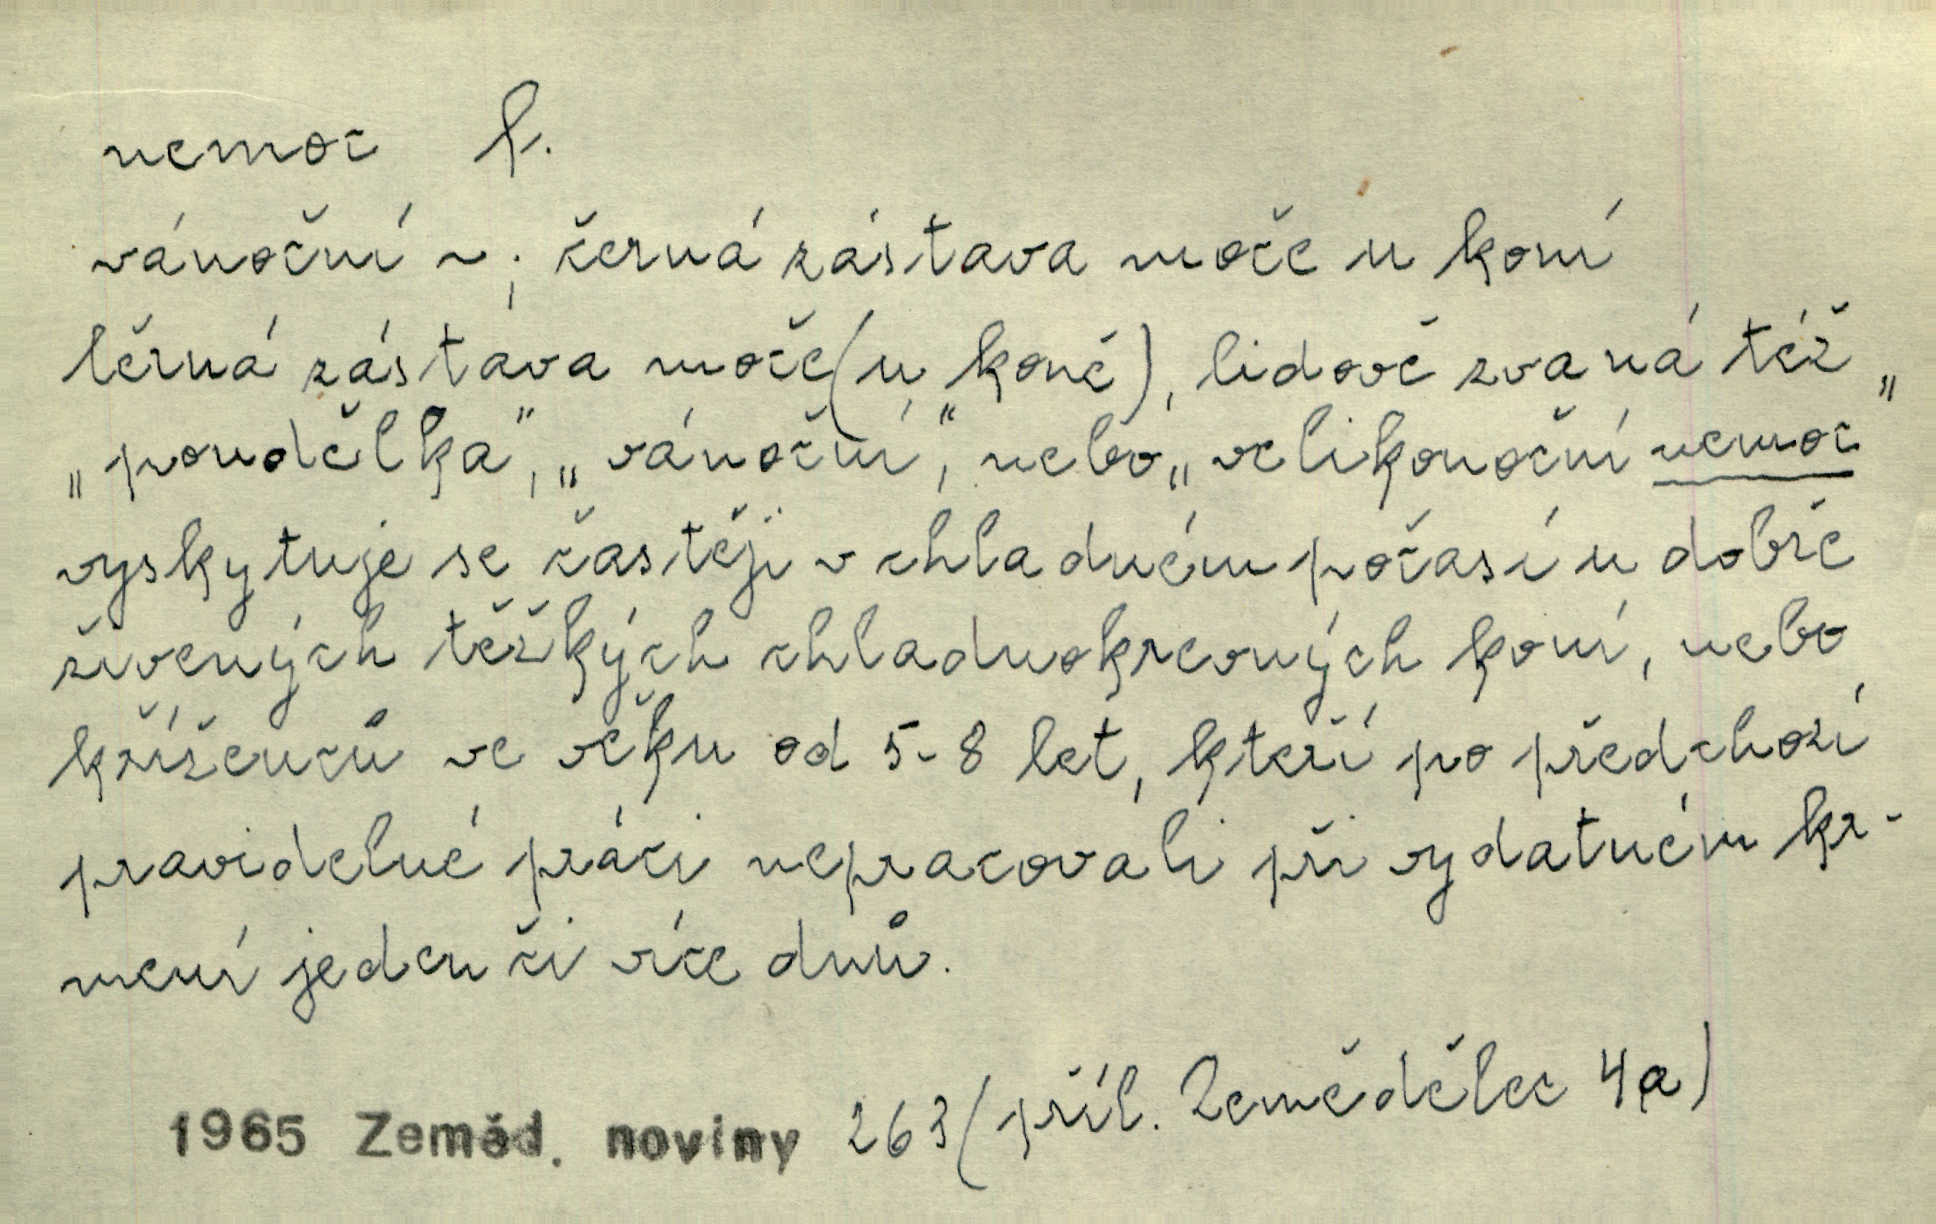 nemoc f.
vánoční ~; černá zástava moče u koní
Černá zástava moče (u koně), lidově zvaná též „
„pondělka", „vánoční," nebo „velikonoční nemoc"
vyskytuje se častěji v chladném počasí u dobře
živených těžkých chladnokrevných koní, nebo
kříženců ve věku od 5-8 let, kteří po předchozí
pravidelné práci nepracovali při vydatném kr-
mení jeden či více dnů.
1965 Zeměd. noviny 263 (příl. Zemědělec 4a)